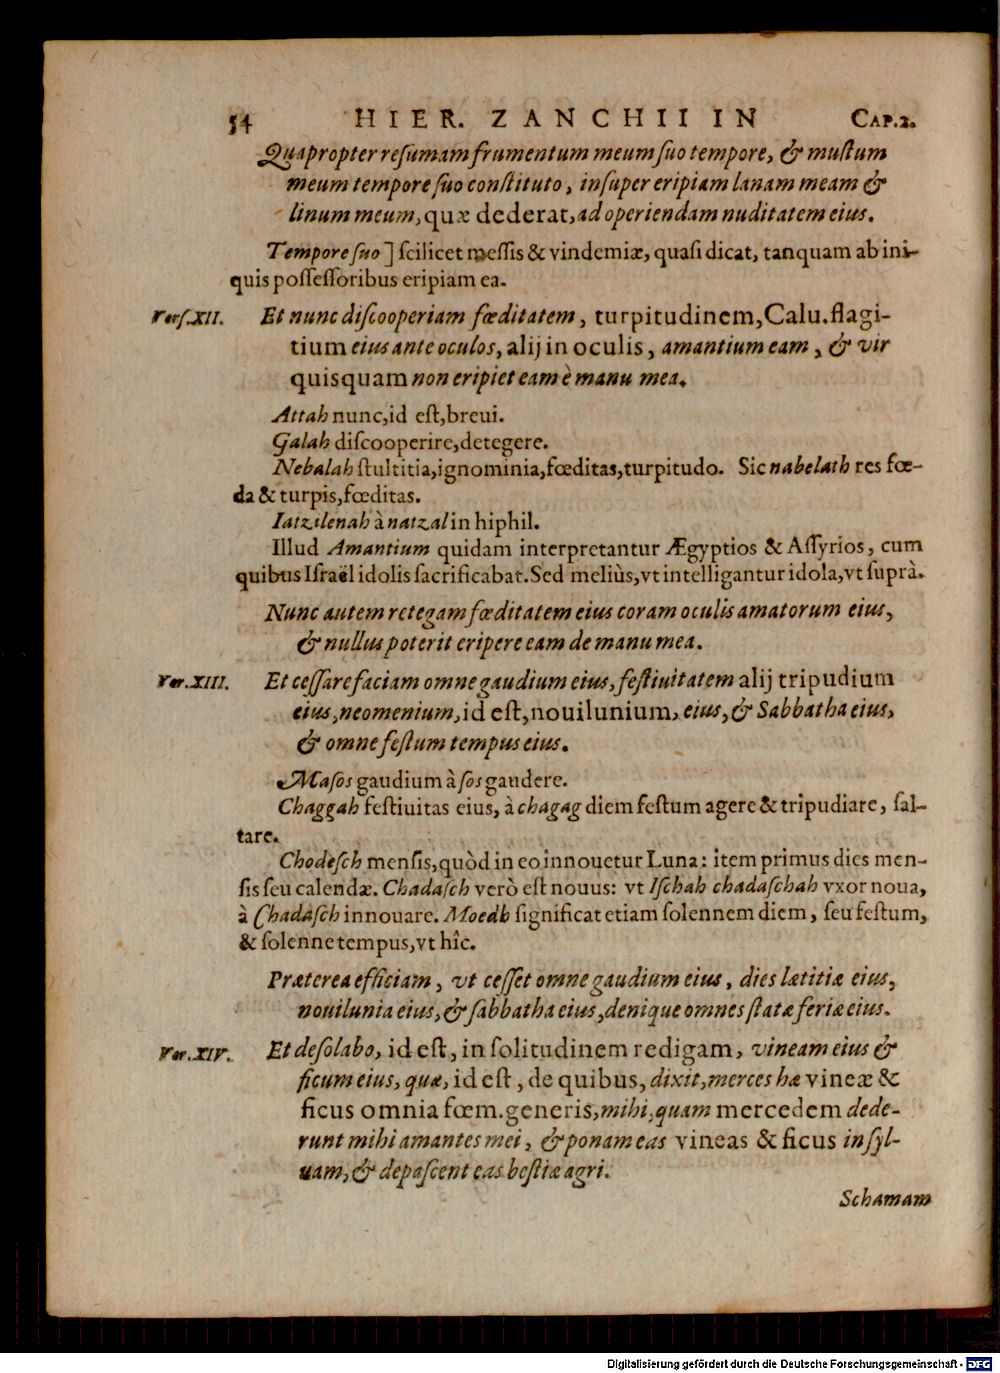 54 HIER. ZANCHII IN CAP.2.
Quapropter resumam frumentum meum suo tempore, & mustum
meum tempore suo constituto, insuper eripiam lanam meam &
linum meum, quæ dederat, ad operiendam nuditatem eius.
Tempore suo] scilicet messis & vindemiæ, quasi dicat, tanquam ab ini-
quis possessoribus eripiam ea.
Vers.XII. Et nunc discooperiam fœditatem, turpitudinem, Calu. flagi-
tium eius ante oculos, alij in oculis, amantium eam, & vir
quisquam non eripiet eam è manu mea.
Attah nunc, id est, breui.
Galah discooperire, detegere.
Nebalah stultitia, ignominia, fœditas, turpitudo. Sic nabelath res fœ-
da & turpis, fœditas.
Iatzilenah à natzal in hiphil.
Illud Amantium quidam interpretantur Ægyptios & Assyrios, cum
quibus Israël idolis sacrificabat. Sed meliùs, vt intelligantur idola, vt suprà.
Nunc autem retegam fœditatem eius coram oculis amatorum eius,
& nullus poterit eripere eam de manu mea.
Ver.XIII. Et cessare faciam omne gaudium eius, festiuitatem alij tripudium
eius, neomenium, id est, nouilunium, eius, & Sabbatha eius,
& omne festum tempus eius.
Masos gaudium à sos gaudere.
Chaggah festiuitas eius, à chagag diem festum agere & tripudiare, sal-
tare.
Chodesch mensis, quòd in eo innouetur Luna: item primus dies men-
sis seu calendæ. Chadasch verò est nouus: vt Ischah chadaschah vxor noua,
à Chadasch innouare. Moedh significat etiam solennem diem, seu festum,
& solenne tempus, vt hîc.
Præterea efficiam, vt cesset omne gaudium eius, dies lætitiæ eius,
nouilunia eius, & sabbatha eius, denique omnes statæ feriæ eius.
Ver.XIV. Et desolabo, id est, in solitudinem redigam, vineam eius &
ficum eius, quæ, id est, de quibus, dixit, merces hæ vineæ &
ficus omnia fœm. generis, mihi, quam mercedem dede-
runt mihi amantes mei, & ponam eas vineas & ficus in syl-
uam, & depascent eas bestiæ agri.
Schamam
Digitalisierung gefördert durch die Deutsche Forschungsgemeinschaft - DFG